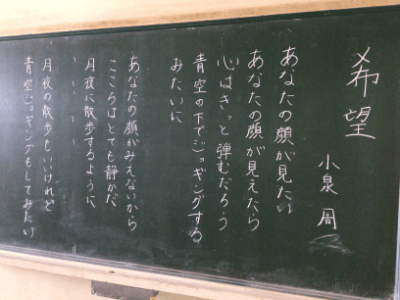 希望
小泉 周
あなたの顔が見たい
あなたの顔が見えたら
心はきっと弾むだろう
青空の下でジョギングする
みたいに
あなたの顔がみえないから
こころはとても静かだ
月夜に散歩するように
、、、、、
月夜の散歩もいいけれど
青空ジョギングもしてみたい